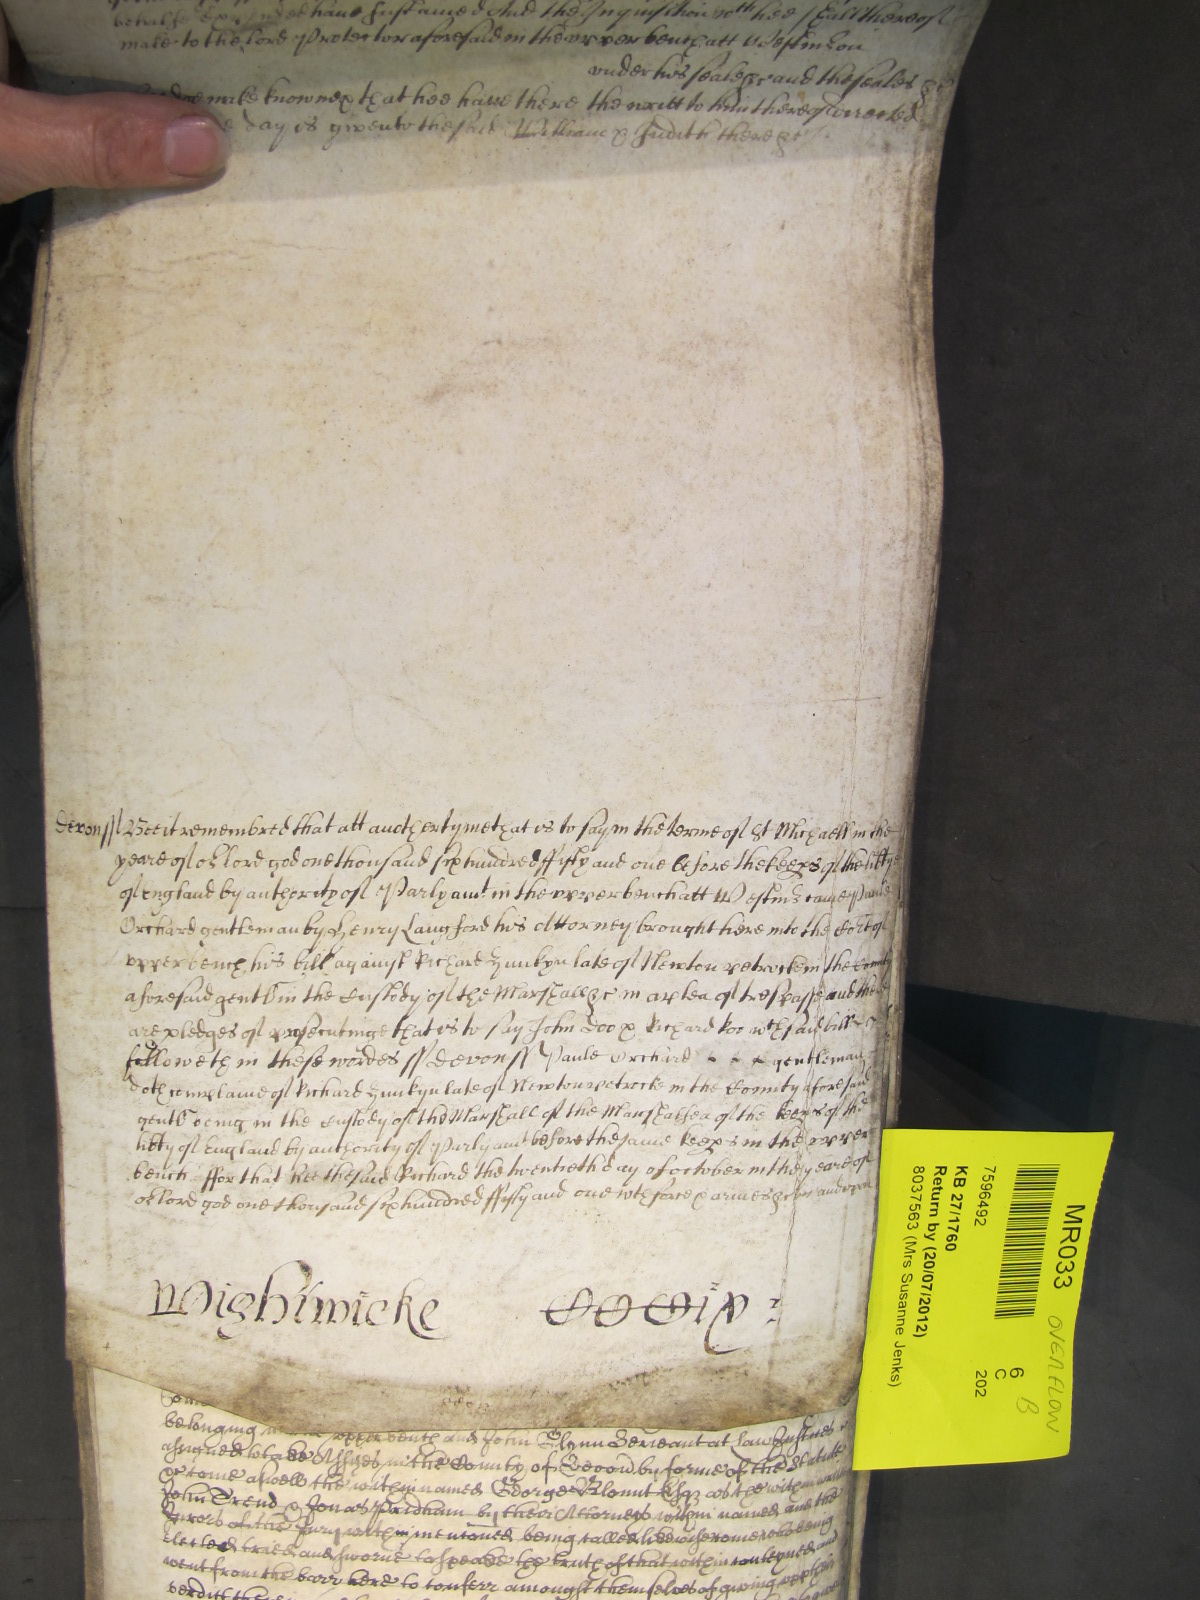 behalfe expended have sustained And the Inquisition wch hee shall thereof
make to the lord Protector aforesaid in the upper bench att Westmr on
under his seale &c and the seales &c
make knowne &c that hee have there the writt to him thereof directed
day is given to the said William & Judith there &c
Devon ss Bee it remembred that att another tyme that is to say in the terme of St Michaell in the
yeare of or lord god one thousand six hundred fifty and one before the keeps of the libty
of England by authority of Parlyamt in the upper bench att Westmr came Paule
Orchard gentleman by Henry Langford his Attorney brought here into the Cort of
upper bench his bill against Richard Hunkyn late of Newton petrocke in the County
aforesaid gentl in the Custody of the Marshall &c in a plea of trespasse and there
are pledges of prosecutinge that is to say John Doo & Richard Roo wch said bill
followeth in these wordes ss Devon ss Paule Orchard gentleman
doth complaine of Richard Hunkyn late of Newton petrocke in the County aforesaid
gentl being in the Custody of the Marshall of the Marshalsea of the keeps of the
libty of England by authority of Parlyamt before the same keeps in the upper
bench ffor that hee the said Richard the twentieth day of october in the yeare of
or lord god one thousand six hundred fifty and one wth force & armes &c and upon
Wightwicke
belonging upper bench and John Glynn Serjeant at Law Justices
assigned to the Assizes in the County of Devon by forme of the Statute
&c came aswell the within named George Blount Esqr as the within written
John Trend & Jonas Pridham by their Attorneys within named and the
Jurors of the Jury within mentioned being called likewise come who being
elected tried and sworne to speake the truth of that within conteyned and
went from the barr here to conferr amongst themselves of giving up their
verdict
MR033
OVERFLOW
6
C
202
B
7596492
KB 27/1760
Return by (20/07/2012)
8037563 (Mrs Susanne Jenks)